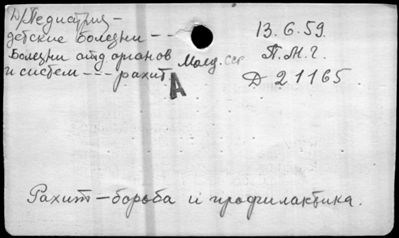 Д/Педиатрия-
детские болезни - -
Болезни отд органов
и систем - - - рахит
Молд. ССР
А
13.6.59.
П.М.Г.
Д 21165
Рахит - борьба и профилактика.